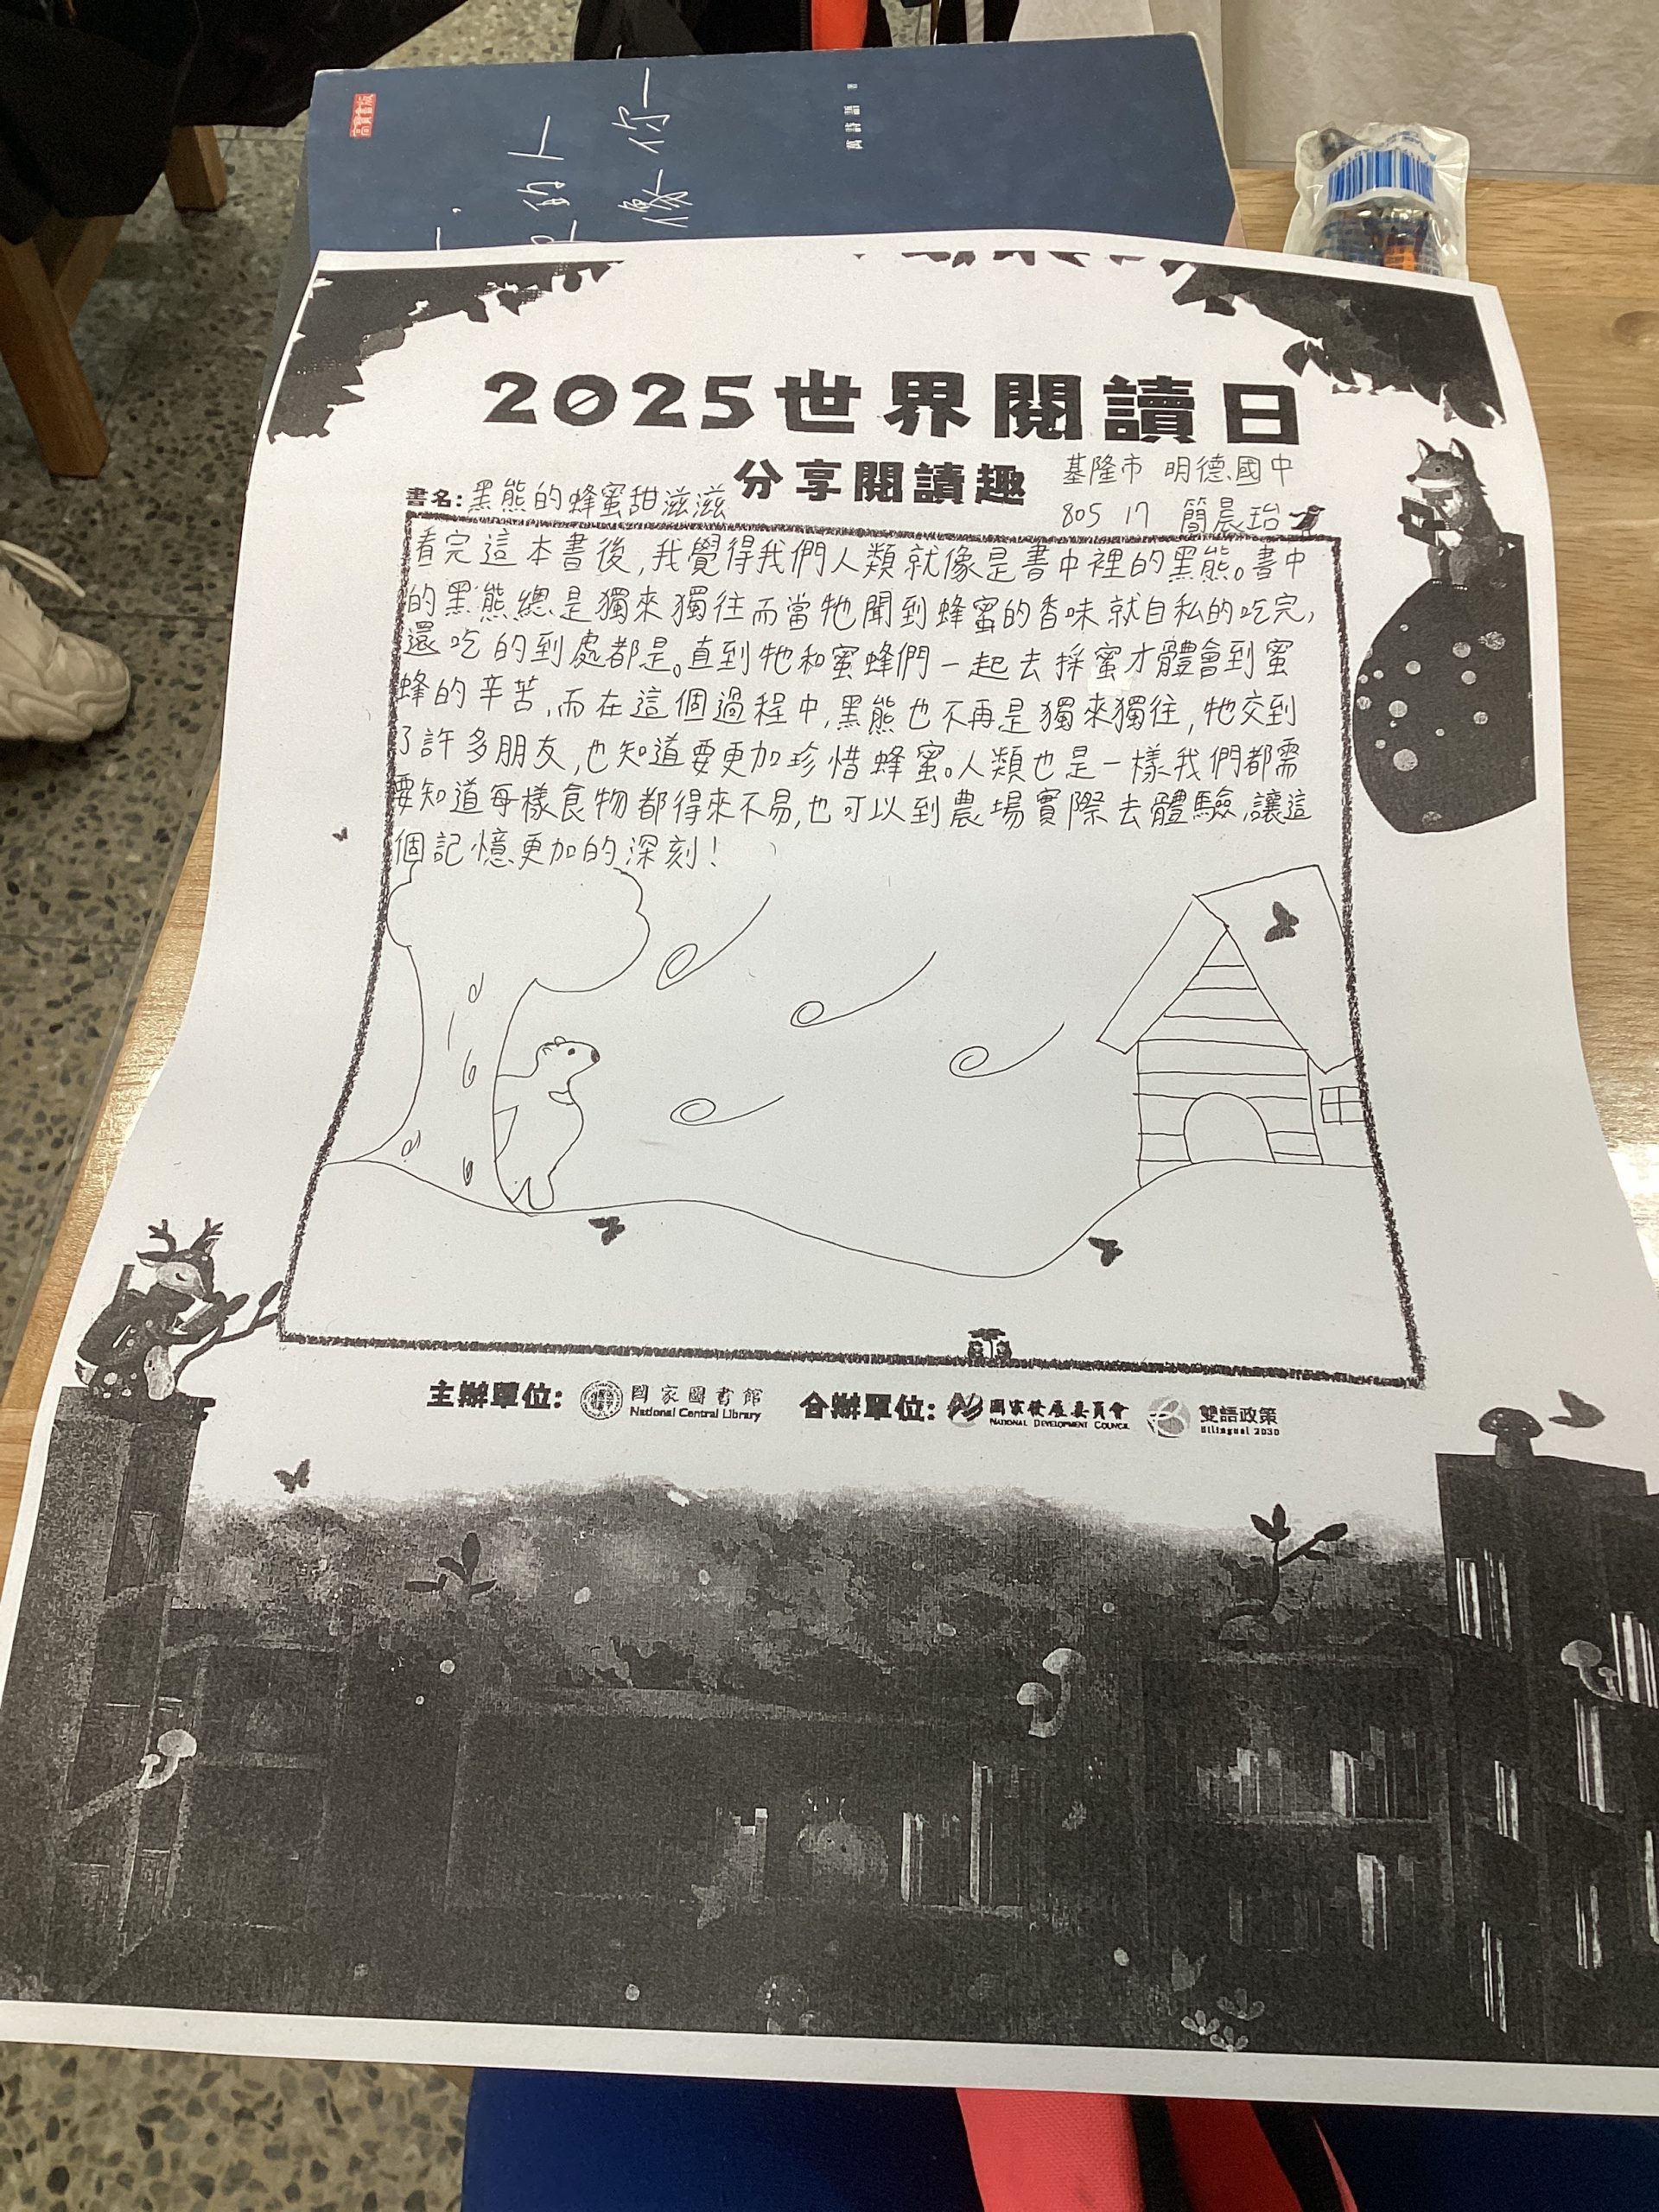 高寶書版
的人
像你一
萬特特 著
2025世界閱讀日
分享閱讀趣
基隆市 明德國中
書名: 黑熊的蜂蜜甜滋滋
805 17 簡晨珆
看完這本書後,我覺得我們人類就像是書中裡的黑熊。書中
的黑熊總是獨來獨往而當牠聞到蜂蜜的香味就自私的吃完,
還吃的到處都是。直到牠和蜜蜂們一起去採蜜才體會到蜜
蜂的辛苦,而在這個過程中,黑熊也不再是獨來獨往,牠交到
了許多朋友,也知道要更加珍惜蜂蜜。人類也是一樣我們都需
要知道每樣食物都得來不易,也可以到農場實際去體驗,讓這
個記憶更加的深刻!
主辦單位: 國家圖書館 合辦單位: 國家發展委員會 雙語政策
National Central Library NATIONAL DEVELOPMENT COUNCIL Bilingual 2030